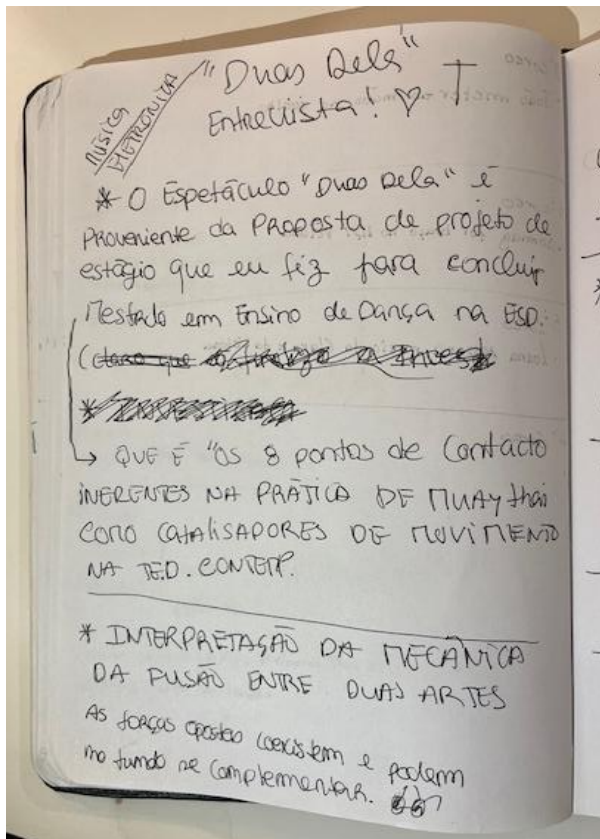 MÚSICA
ELETRÓNICA
"Duas Dela"
Entrevista! ♡
* O Espetáculo "Duas Dela" é
Proveniente da Proposta de projeto de
estágio que eu fiz para concluir
Mestrado em Ensino de Dança na ESD.
(claro que
→ QUE É "Os 8 pontos de Contacto
INERENTES NA PRÁTICA DE MUAY thai
COMO CATALISADORES DE MOVIMENTO
NA TE.D. CONTEMP.
* INTERPRETAÇÃO DA MECÂNICA
DA FUSÃO ENTRE DUAS ARTES
As forças opostas coexistem e podem
no fundo se complementar.